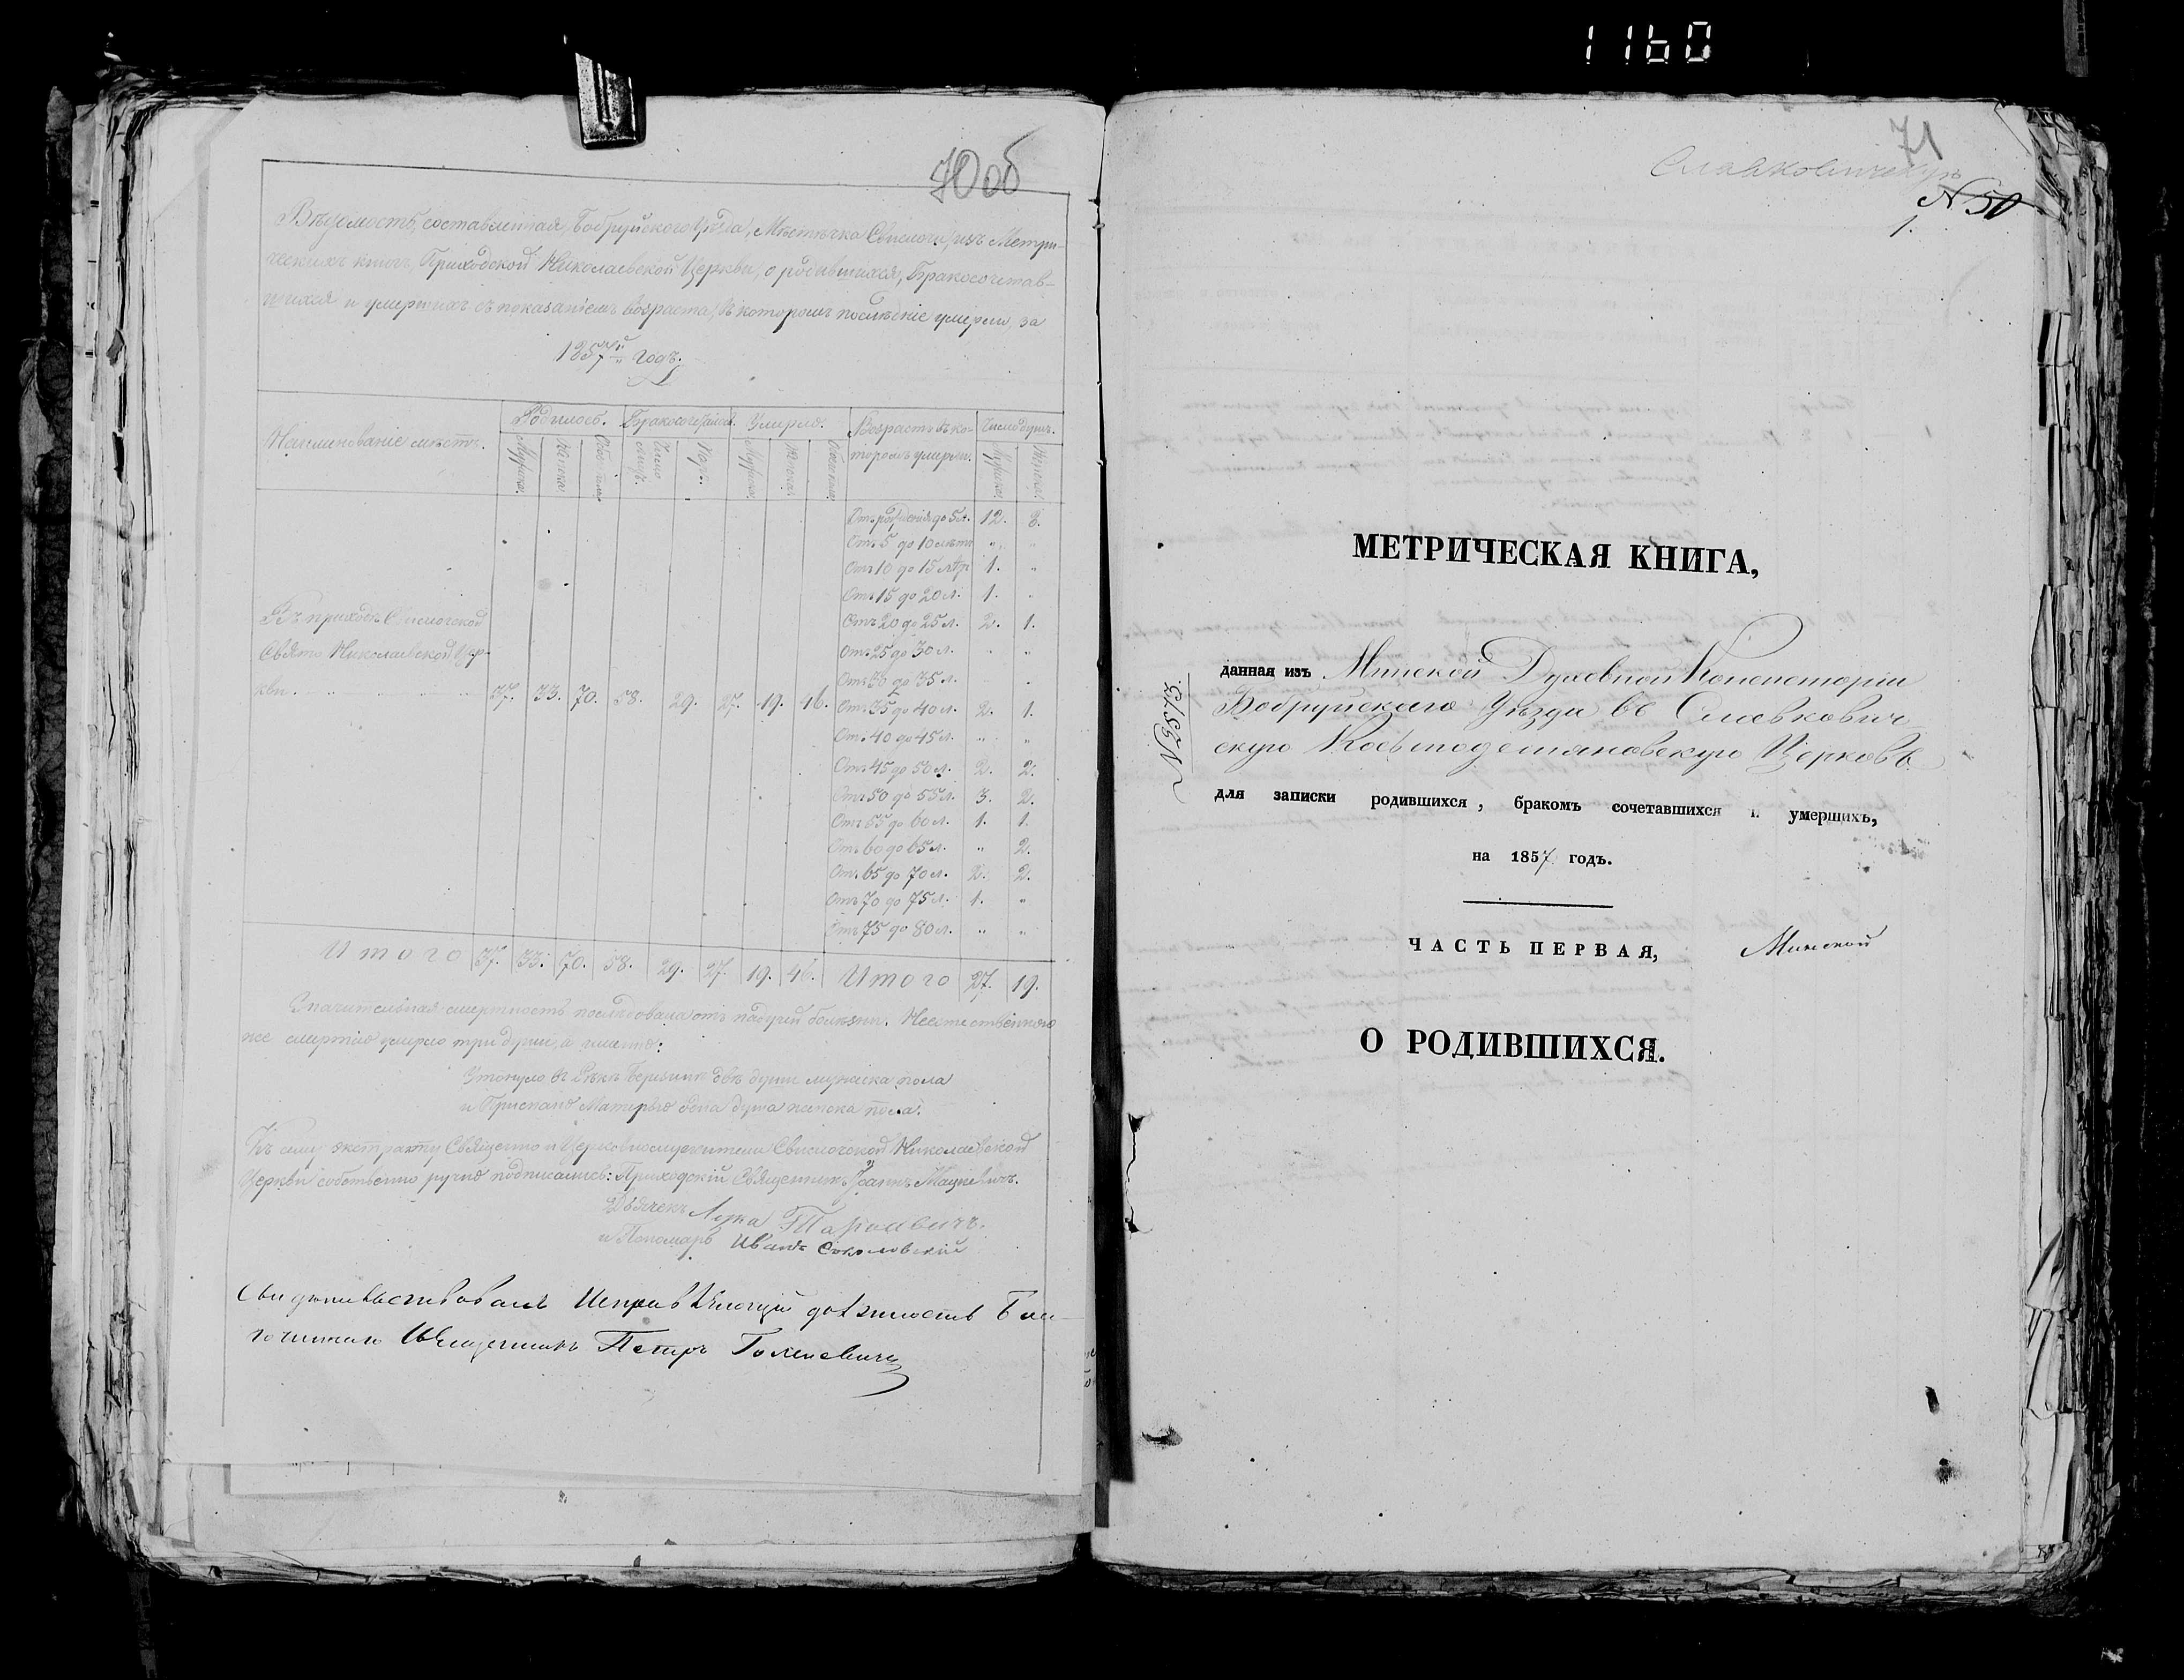 1160
70об
Вѣдомость, составленная, Бобруйского Уѣзда, Мѣстечка Свислочи, изъ Метри-
ческихъ книгъ, Приходской Николаевской Церкви, о родившихся, Бракосочетав-
шихся и умершихъ съ показаніемъ возраста, въ которомъ послѣдніе умерли, за
1857й годъ.
Наименованіе мѣстъ. Родилось. Бракосочеталось. Умерло. Возрастъ въ ко- Число душъ.
Мужска. Женска. Обоего пола Число лицъ. Паръ. Мужска. Женска. Обоего пола торомъ умерли. Мужска. Женска.
Отъ рожденія до 5 л. 12. 8.
Отъ 5 до 10 лѣтъ „ „
Отъ 10 до 15 лѣтъ 1. „
Отъ 15 до 20 л. 1. „
Въ приходѣ Свислочской Отъ 20 до 25 л. 2. 1.
Свято Николаевской Цер- Отъ 25 до 30 л. „ „
Отъ 30 до 35 л. „
кви. 37. 33. 70. 58. 29. 27. 19. 46. Отъ 35 до 40 л. 2. 1.
Отъ 40 до 45 л. „ „
Отъ 45 до 50 л. 2. 2.
Отъ 50 до 55 л. 3. 2.
Отъ 55 до 60 л. 1. 1.
Отъ 60 до 65 л. „ 2.
Отъ 65 до 70 л. 2. 2.
Отъ 70 до 75 л. 1. „
Отъ 75 до 80 л. „ „
Итого 37. 33. 70. 58. 29. 27. 19. 46. Итого 27. 19.
Значительная смертность послѣдовала отъ падучей болѣзни. Неестественною
же смертію умерло три души, а именно:
Утонуло въ Рѣкѣ Березинѣ двѣ души мужска пола
и Приспано Матерью одна душа женска пола.
Къ сему экстракту Священно и Церковнослужители Свислочской Николаевской
Церкви собственно ручно подписались: Приходскій Священникъ Іоаннъ Мацкевичъ.
Дьячекъ Лука
и Пономарь Иванъ Соколовскій
Свидѣтельствовалъ Исправляющій должность Бла-
гочиннаго Священникъ Петръ
71
Славковичскую
№ 50
1.
МЕТРИЧЕСКАЯ КНИГА,
данная изъ Минской Духовной Консисторіи
Бобруйскаго Уѣзда въ Славкович-
скую Космодемяновскую Церковь
для записки родившихся, бракомъ сочетавшихся и умершихъ,
на 1857 годъ.
ЧАСТЬ ПЕРВАЯ, Минской
О РОДИВШИХСЯ.